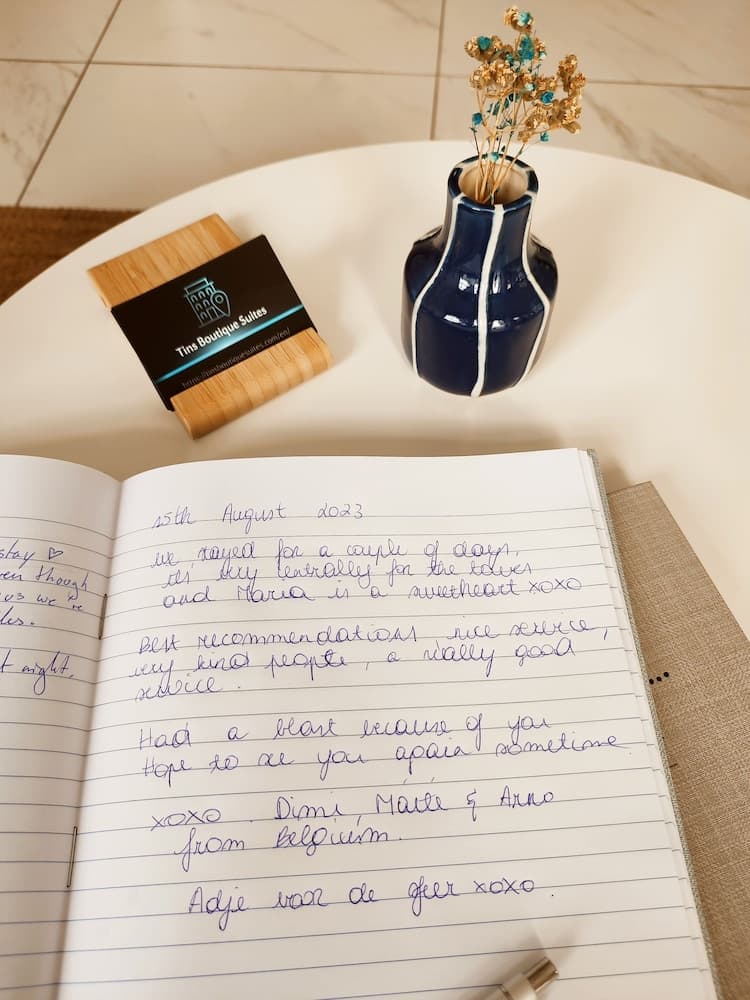 Tins Boutique Suites
https://tinsboutiquesuites.com/en/
stay ♡
even though
us we're
night.
15th August 2023
we stayed for a couple of days,
its very centrally for the
and Maria is a sweetheart xoxo
Best recommendations, nice service,
very kind people, a really good
service.
Had a blast because of you
Hope to see you again sometime
xoxo Dimi, & Arno
from Belgium.
Adje voor de sfeer xoxo.